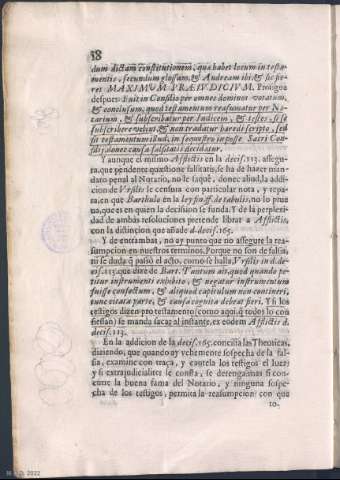 38
dum dictam constitutionem, qua habet locum in testa-
mentis, secundum glossam, & Andream ibi: & sic fie-
ret MAXIMUM PRÆIUDICIUM. Prosigue
despues: Fuit in Consilio per omnes dominos votatum,
& conclusum, quod testamentum reasumatur per No-
tarium, & subscribatur per Iudicem, & testes, si se
subscribere velint, & non tradatur haredi scripto, sed
si testamentum illud, in secuestro in posse Sacri Consi-
lij, donec causa falsitatis decidatur.
Y aunque el mismo Afflictis en la decis. 113. assegu-
ra, que pendente quæstione falsitatis, se ha de hazer man-
dato penal al Notario, no le saquè, donec aliud, la addi-
cion de Ursilis le censura con particular nota, y repa-
ra, en que Barthulo en la ley fin. ff. de tabulis, no lo prue
va, que es en quien la decision se funda. Y de la perplexi-
dad de ambas resoluciones pretende librar a Afflictis,
con la distincion, que añade d. decis. 165.
Y de entrambas, no ay punto que no assegure la rea-
sumpcion en nuestros terminos. Porque no son de falsa,
ni se duda q̃ passò el acto, como se halla, Ursilis in d. de-
cis. 115. que dize de Bart. Tantum ait, quod quando pe-
titur instrumenti exhibitio, & negatur instrumentum
fuisse confectum, & aliquod capitulum non contineri,
tunc citata parte, & causa cognita debeat fieri. Y si los
testigos dizen pro testamento (como aqui q̃ todos lo con
fiessan) se manda sacar al instante, ex eodem Afflictis d.
decis. 113.
En la addicion de la decis. 165. concilia las Theoricas,
diziendo, que quando ay vehemente sospecha de la fal-
sia, examine con traça, y cautela los testigos el Iuez;
y si extrajudicialiter le consta, se detenga: mas si con-
curre la buena fama del Notario, y ninguna sospe-
cha de los testigos, permita la reasumpcion: con que
10.
M.C.D. 2022